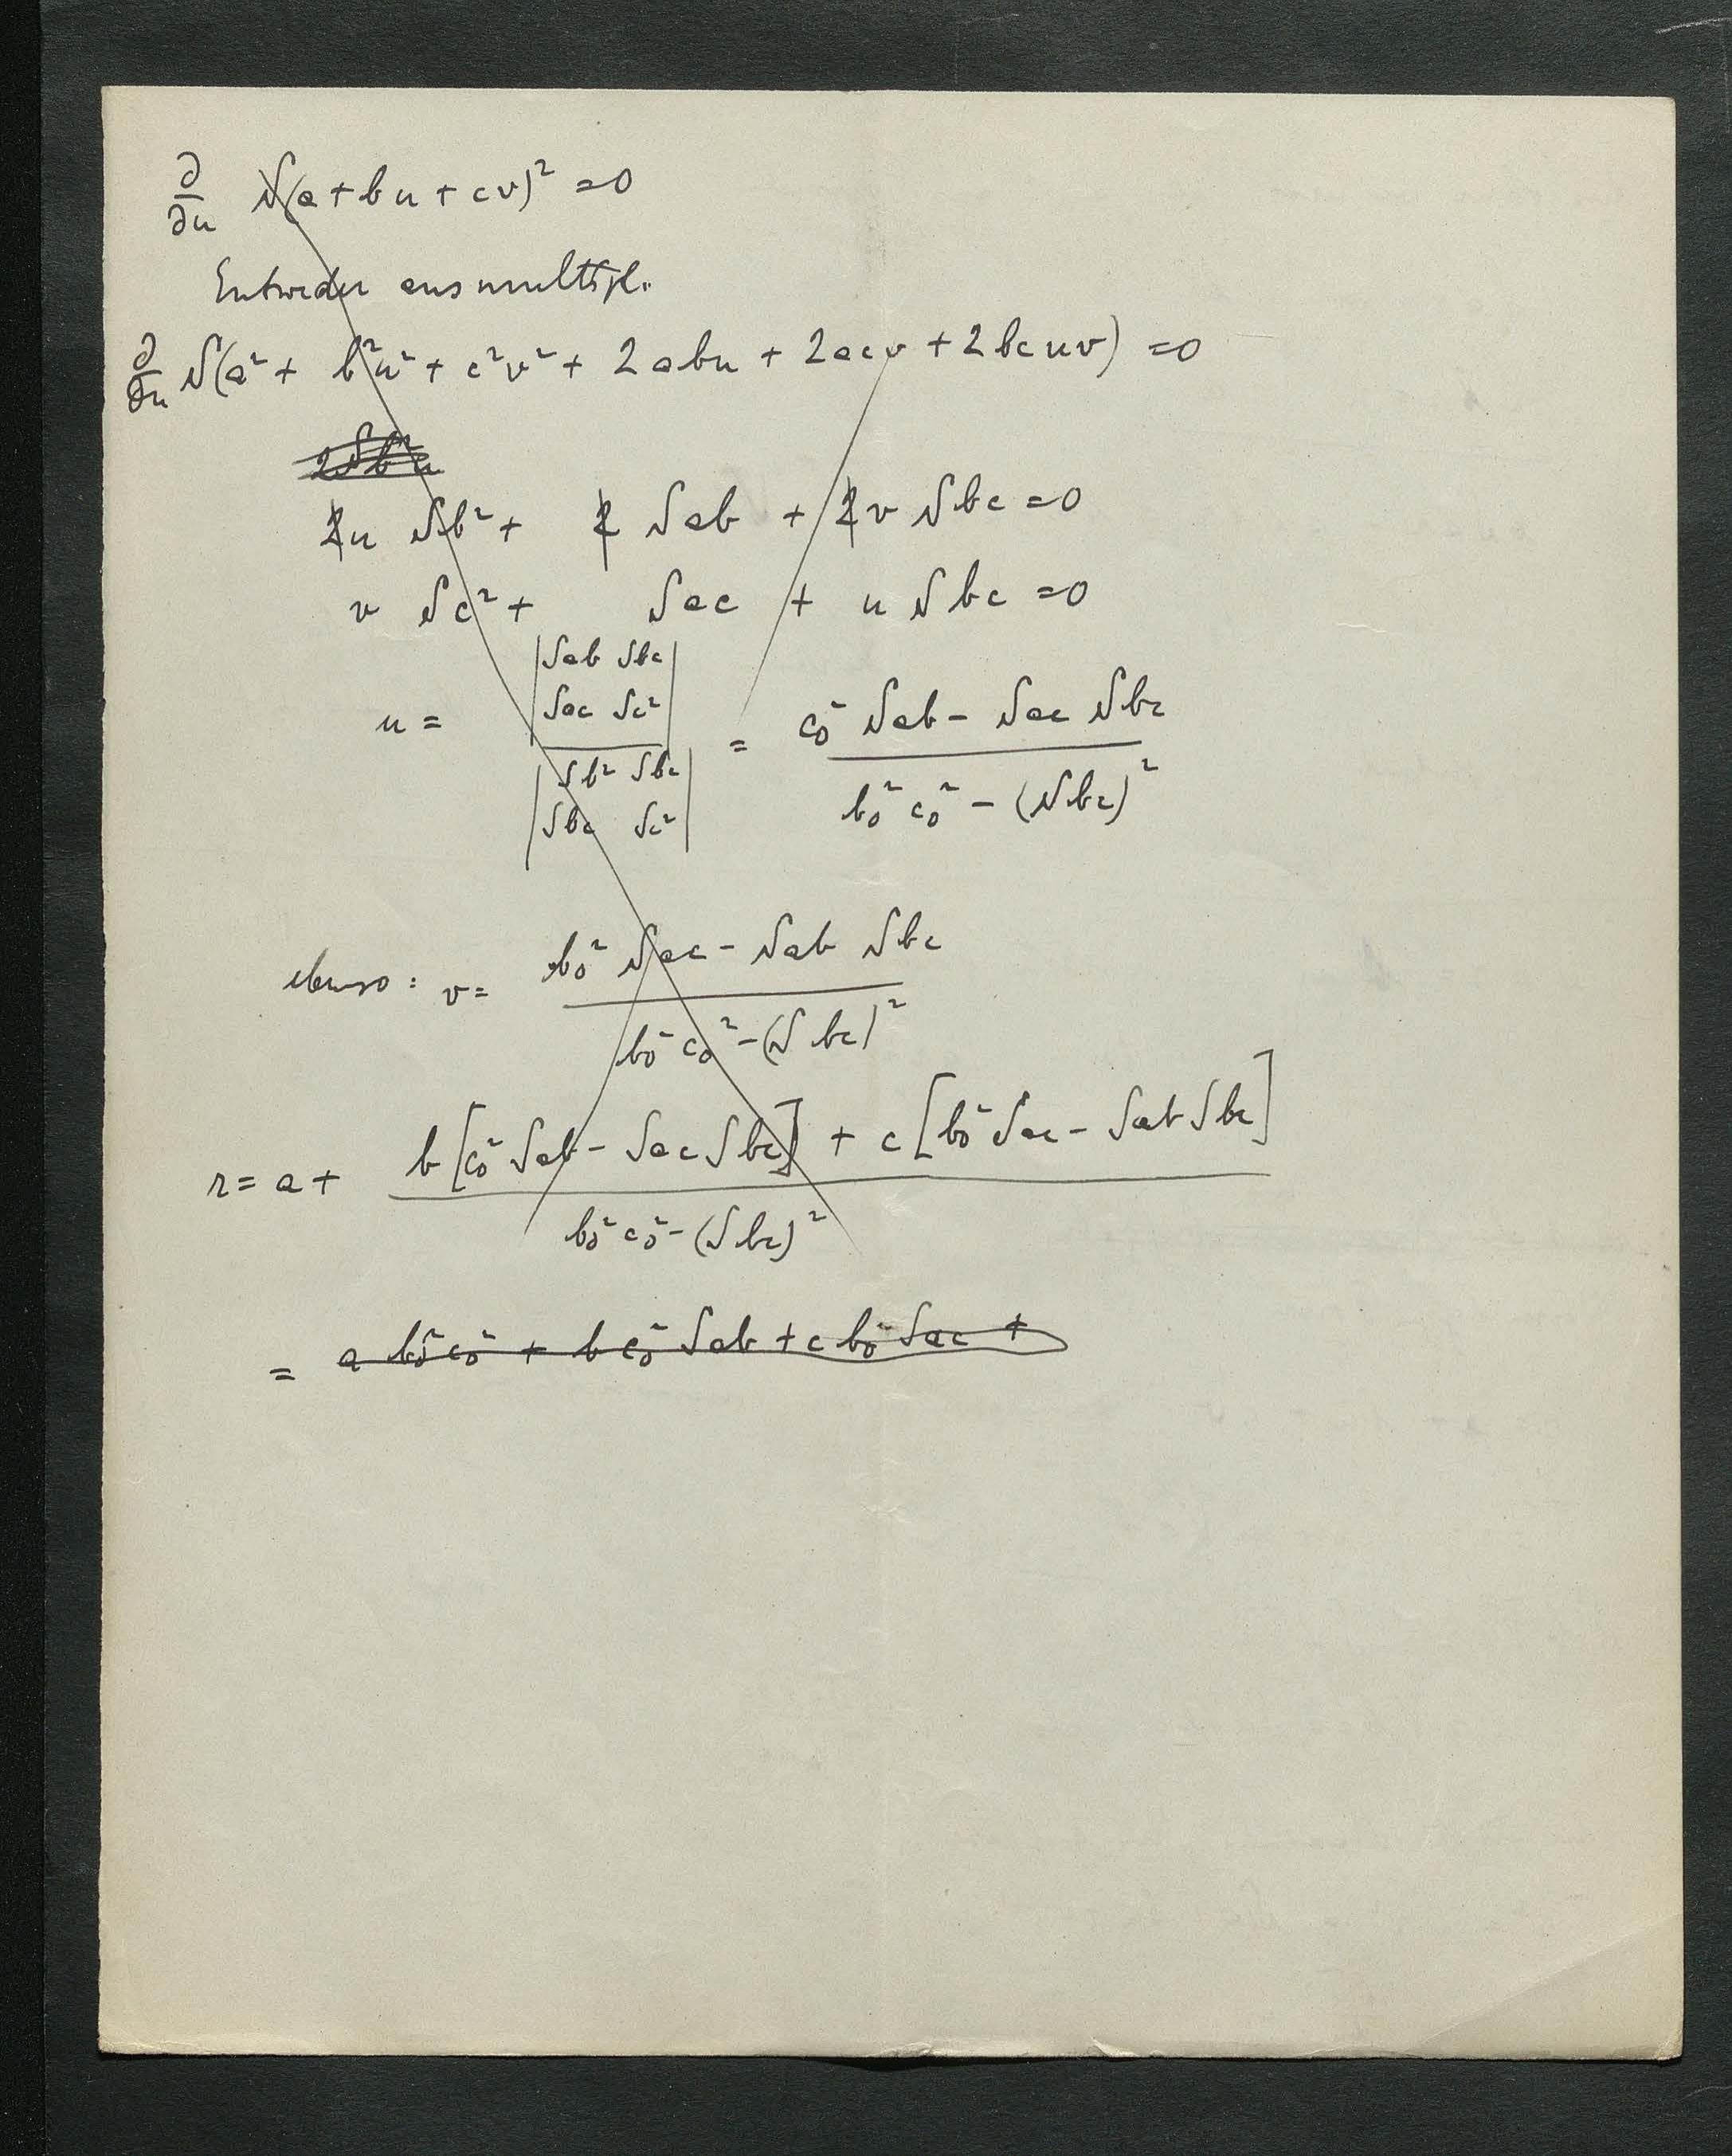 ∂/∂u S(a + bu + cv)² = 0
Entweder ausmultipl.
∂/∂u S(a² + b²u² + c²v² + 2abu + 2acv + 2bcuv) = 0
2Sb²u
2u Sb² + 2 Sab + 2v Sbc = 0
v Sc² + Sac + u Sbc = 0
u = |Sab Sbc / Sac Sc²| / |Sb² Sbc / Sbc Sc²| = (c₀² Sab − Sac Sbc) / (b₀² c₀² − (Sbc)²)
ebenso: v = (b₀² Sac − Sab Sbc) / (b₀² c₀² − (Sbc)²)
r = a + (b[c₀² Sab − Sac Sbc] + c[b₀² Sac − Sab Sbc]) / (b₀² c₀² − (Sbc)²)
= a b₀² c₀² + b c₀² Sab + c b₀² Sac +